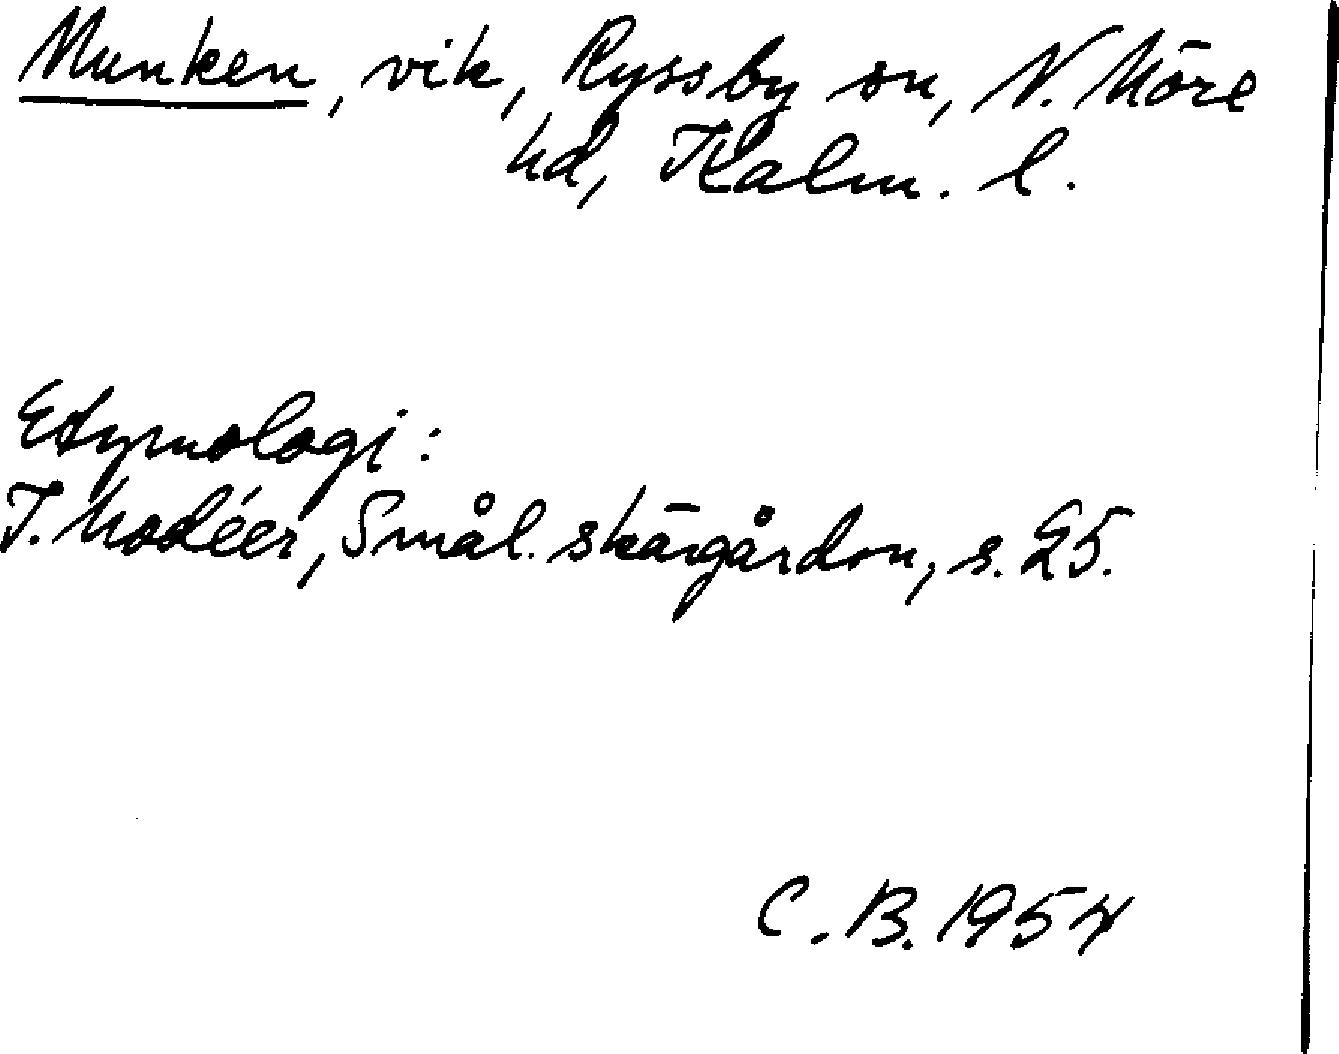 Munken, vik, Ryssby sn, N. Möre
hd, Kalm. l.
Etymologi:
I. Modéer, Smål. skärgårdsn, s. 25.
C. B. 1954